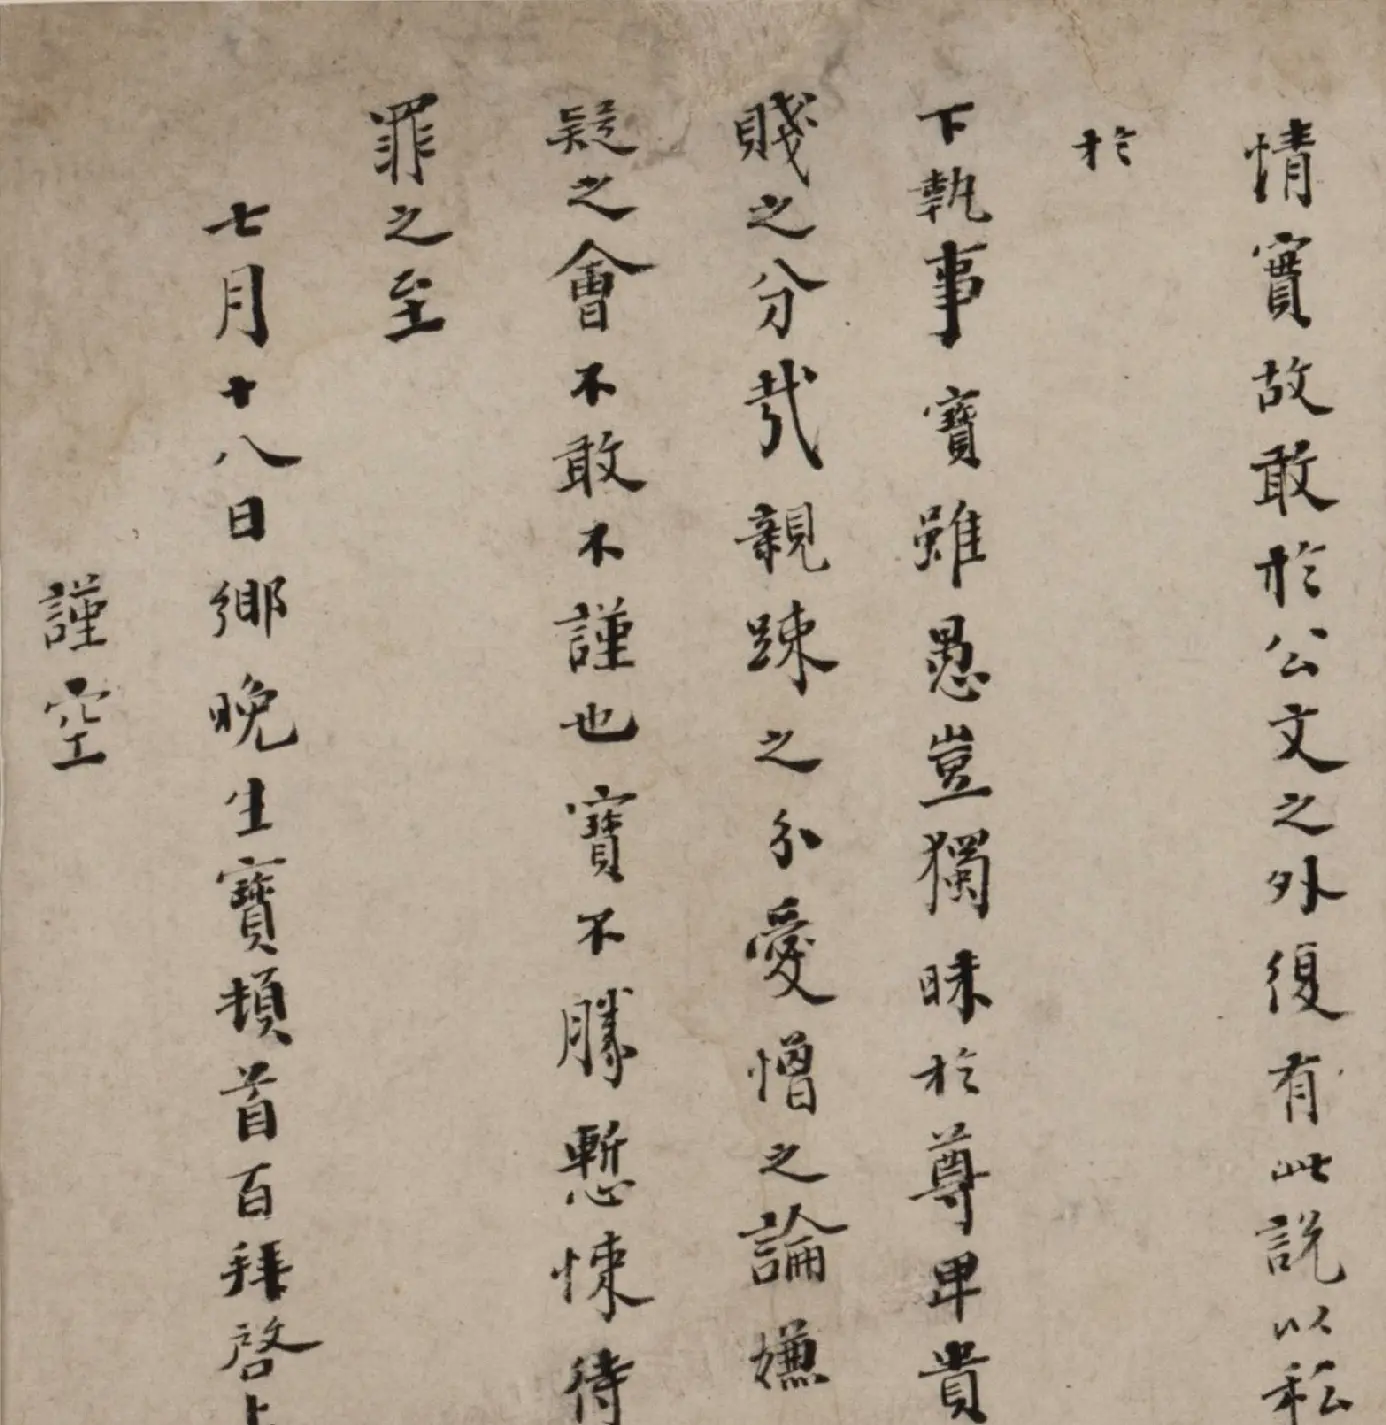 情實故敢於公文之外復有此説以私
於
下執事寳雖愚豈獨昧於尊卑貴
賤之分哉親踈之分愛憎之論嫌
疑之會不敢不謹也寳不勝慙悚待
罪之至
七月十八日鄉晚生寳頓首百拜啓上
謹空